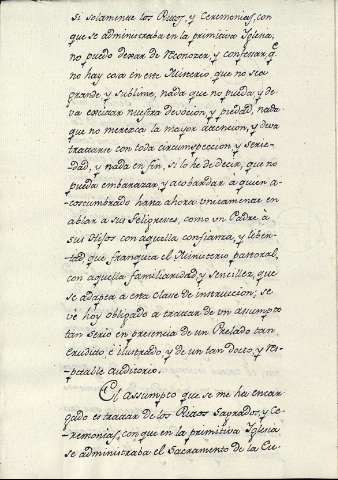 si solamente los Ritos, y Ceremonias, con
que se administraba en la primitiva Iglesia,
no puedo dexar de reconozer, y confesar q.e
no hay cosa en este Minsterio que no sea
grande y sublime, nada que no pueda, y de-
va excitar nuestra devocion, y piedad, nada
que no merezca la mayor atencion, y deva
tratarse con toda circunspeccion y serie-
dad, y nada en fin, si lo he de decir, que no
pueda embarazar, y acobardar à quien a-
costumbrado hasta ahora unicamente en
ablar a sus Feligreses, como un Padre a
sus Hijos con aquella confianza, y liber-
tad que franquea el Ministerio pastoral,
con aquella familiaridad, y sencillez, que
se adapta a esta clase de instruccion; se
vé hoy obligado a tratar de un assumpto
tan serio en presencia de un Prelado tan
erudito è ilustrado, y de un tan docto, y res-
petable auditorio.
El assumpto que se me ha encar-
gado es tratar de los Ritos Sagrados, y Ce-
remonias, con que en la primitiva Iglesia
se administraba el Sacramento de la Eu-